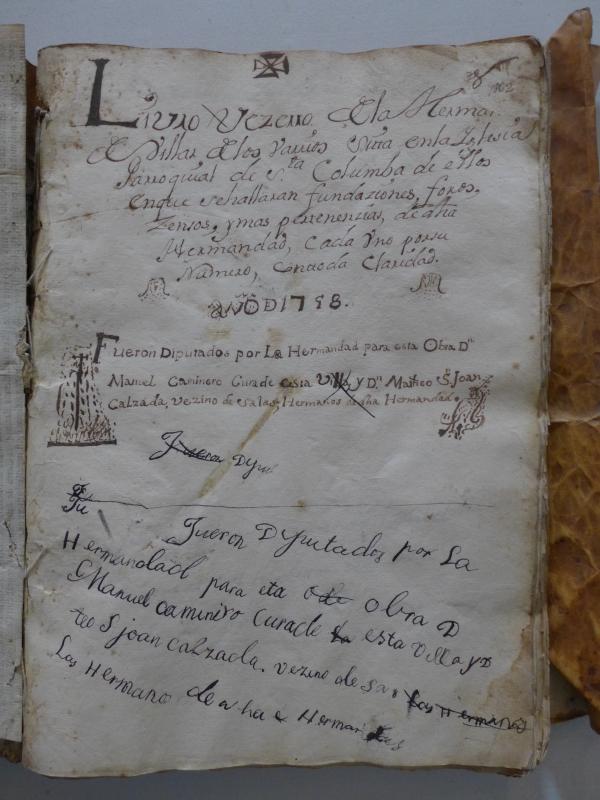 Livro Vezerro, de la Herma.
de Villar de los Varrios sitta en la Iglesia
Parroquial de S.ta Columba de ellos
en que se hallaran fundaziones, foros,
Zensos, y mas pertenenzias, de dha
Hermandad, Cada Vno por su
Numero, con toda Claridad.
AÑO D 1758.
Fueron Diputados por La Hermandad para esta Obra Dn
Manuel Caminero Cura de esta Villa, y Dn Matheo Sn Joan
Calzada, vezino de Salas, Hermanos de dha Hermandad.
Fueron Dipu
Fu
Fueron Dyputados por La
Hermandad para eta obra D
Manuel caminiro Curade la esta Villa y D
teo S joan calzada. vezino de Sa, Las Hermanas
Las Hermano de a ha e Herman